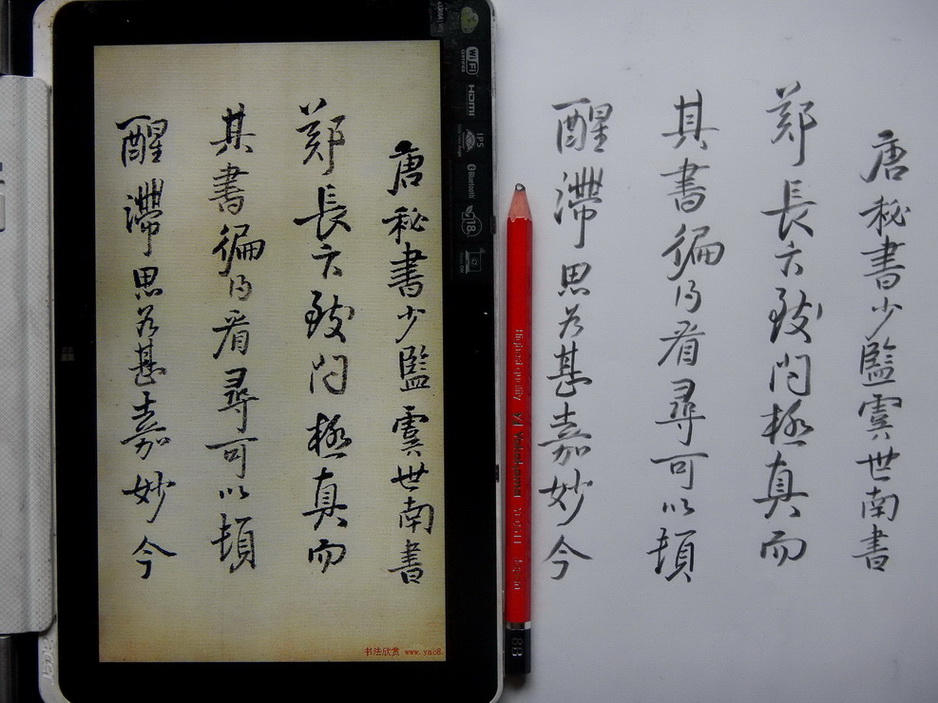 唐秘書少監虞世南書
鄭長官致問極真而
其書徧乃看尋可以頓
醒滯思為甚嘉妙今
书法欣赏 www.yac8.
WiFi
HDMI
IPS
Bluetooth
唐秘書少監虞世南書
鄭長官致問極真而
其書徧乃看尋可以頓
醒滯思為甚嘉妙今
8B